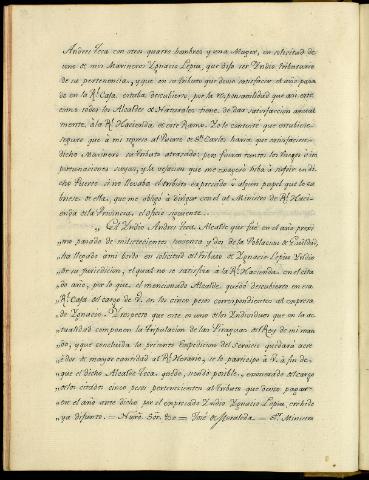 Andres Teca con otros quatro hombres y una Muger, en solicitud de
uno de mis Marineros Ygnacio Lepia, que dixo ser Yndio tributario
de su pertenencia, y que en su tributo que devio satisfacer el año pasa-
do en la Rl. Caxa, estaba descubierto, por la responsabilidad que asi este
como todos los Alcaldes de Naturales tiene, de dar satisfaccion anual-
mente, à la Rl. Hacienda, de este Ramo. Yo le contexté que estubiese
seguro que à mi regreso al Puerto de Sn. Carlos haria que satisfaciese
dicho Marinero su tributo atrasado; pero fueron tantos los ruegos è im
portunaciones suyas, y la reflexion que me exageró hiba à sufrir en di-
cho Puerto si no llevaba el tributo expresado ò algun papel que lo cu-
briese de ella, que me obligó à dirigir con el al Ministro de Rl. Haci-
enda de la Provincia, el oficio siguiente
„ El Yndio Andres Teca, Alcalde que fué en el año proxi-
„mo pasado de mil setecientos noventa y dos de la Poblacion de Quilldad,
„ha llegado ami bordo en solicitud del tributo de Ygnacio Lepia Yndio
„de su jurisdiccion, el qual no se satisfizo à la Rl. Hacienda en el cita
„do año, por lo que, el mencionado Alcalde, quedó descubierto en esa
„Rl. Caxa del cargo de V. en los cinco pesos correspondientes al expresa-
„do Ygnacio. Y respecto que este es uno de los Yndividuos que en la ac-
„tualidad componen la tripulacion de las Piraguas del Rey de mi man-
„do, y que concluida la presente Expedicion del servicio quedará acre
„edor de mayor cantidad al Rl. Herario, se lo participo à V. à fin de-
„que el dicho Alcalde Teca quede, siendo posible, exonerado del cargo
„de los citados cinco pesos pertenecientes al tributo que devió pagar-
„en el año ante dicho por el expresado Yndio Ygnacio Lepia, crehido
„ya difunto. = Nuro. Sor. &c = José de Moraleda = Sr. Ministro